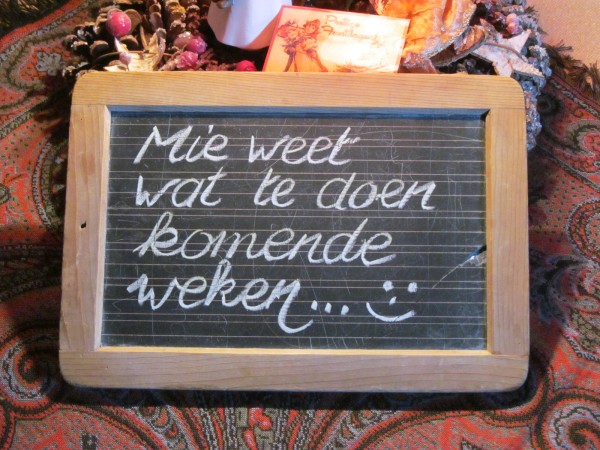 Mie weet
wat te doen
komende
weken...